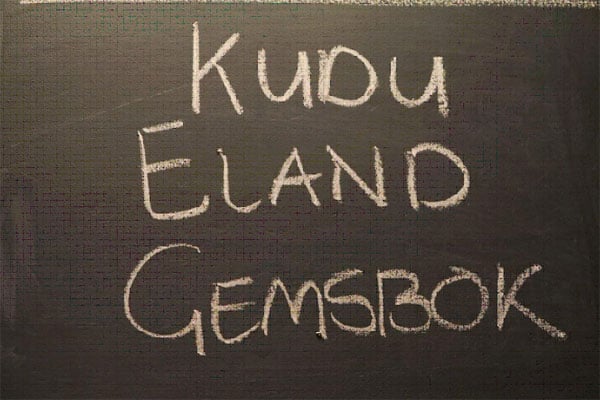 KUDU
ELAND
GEMSBOK